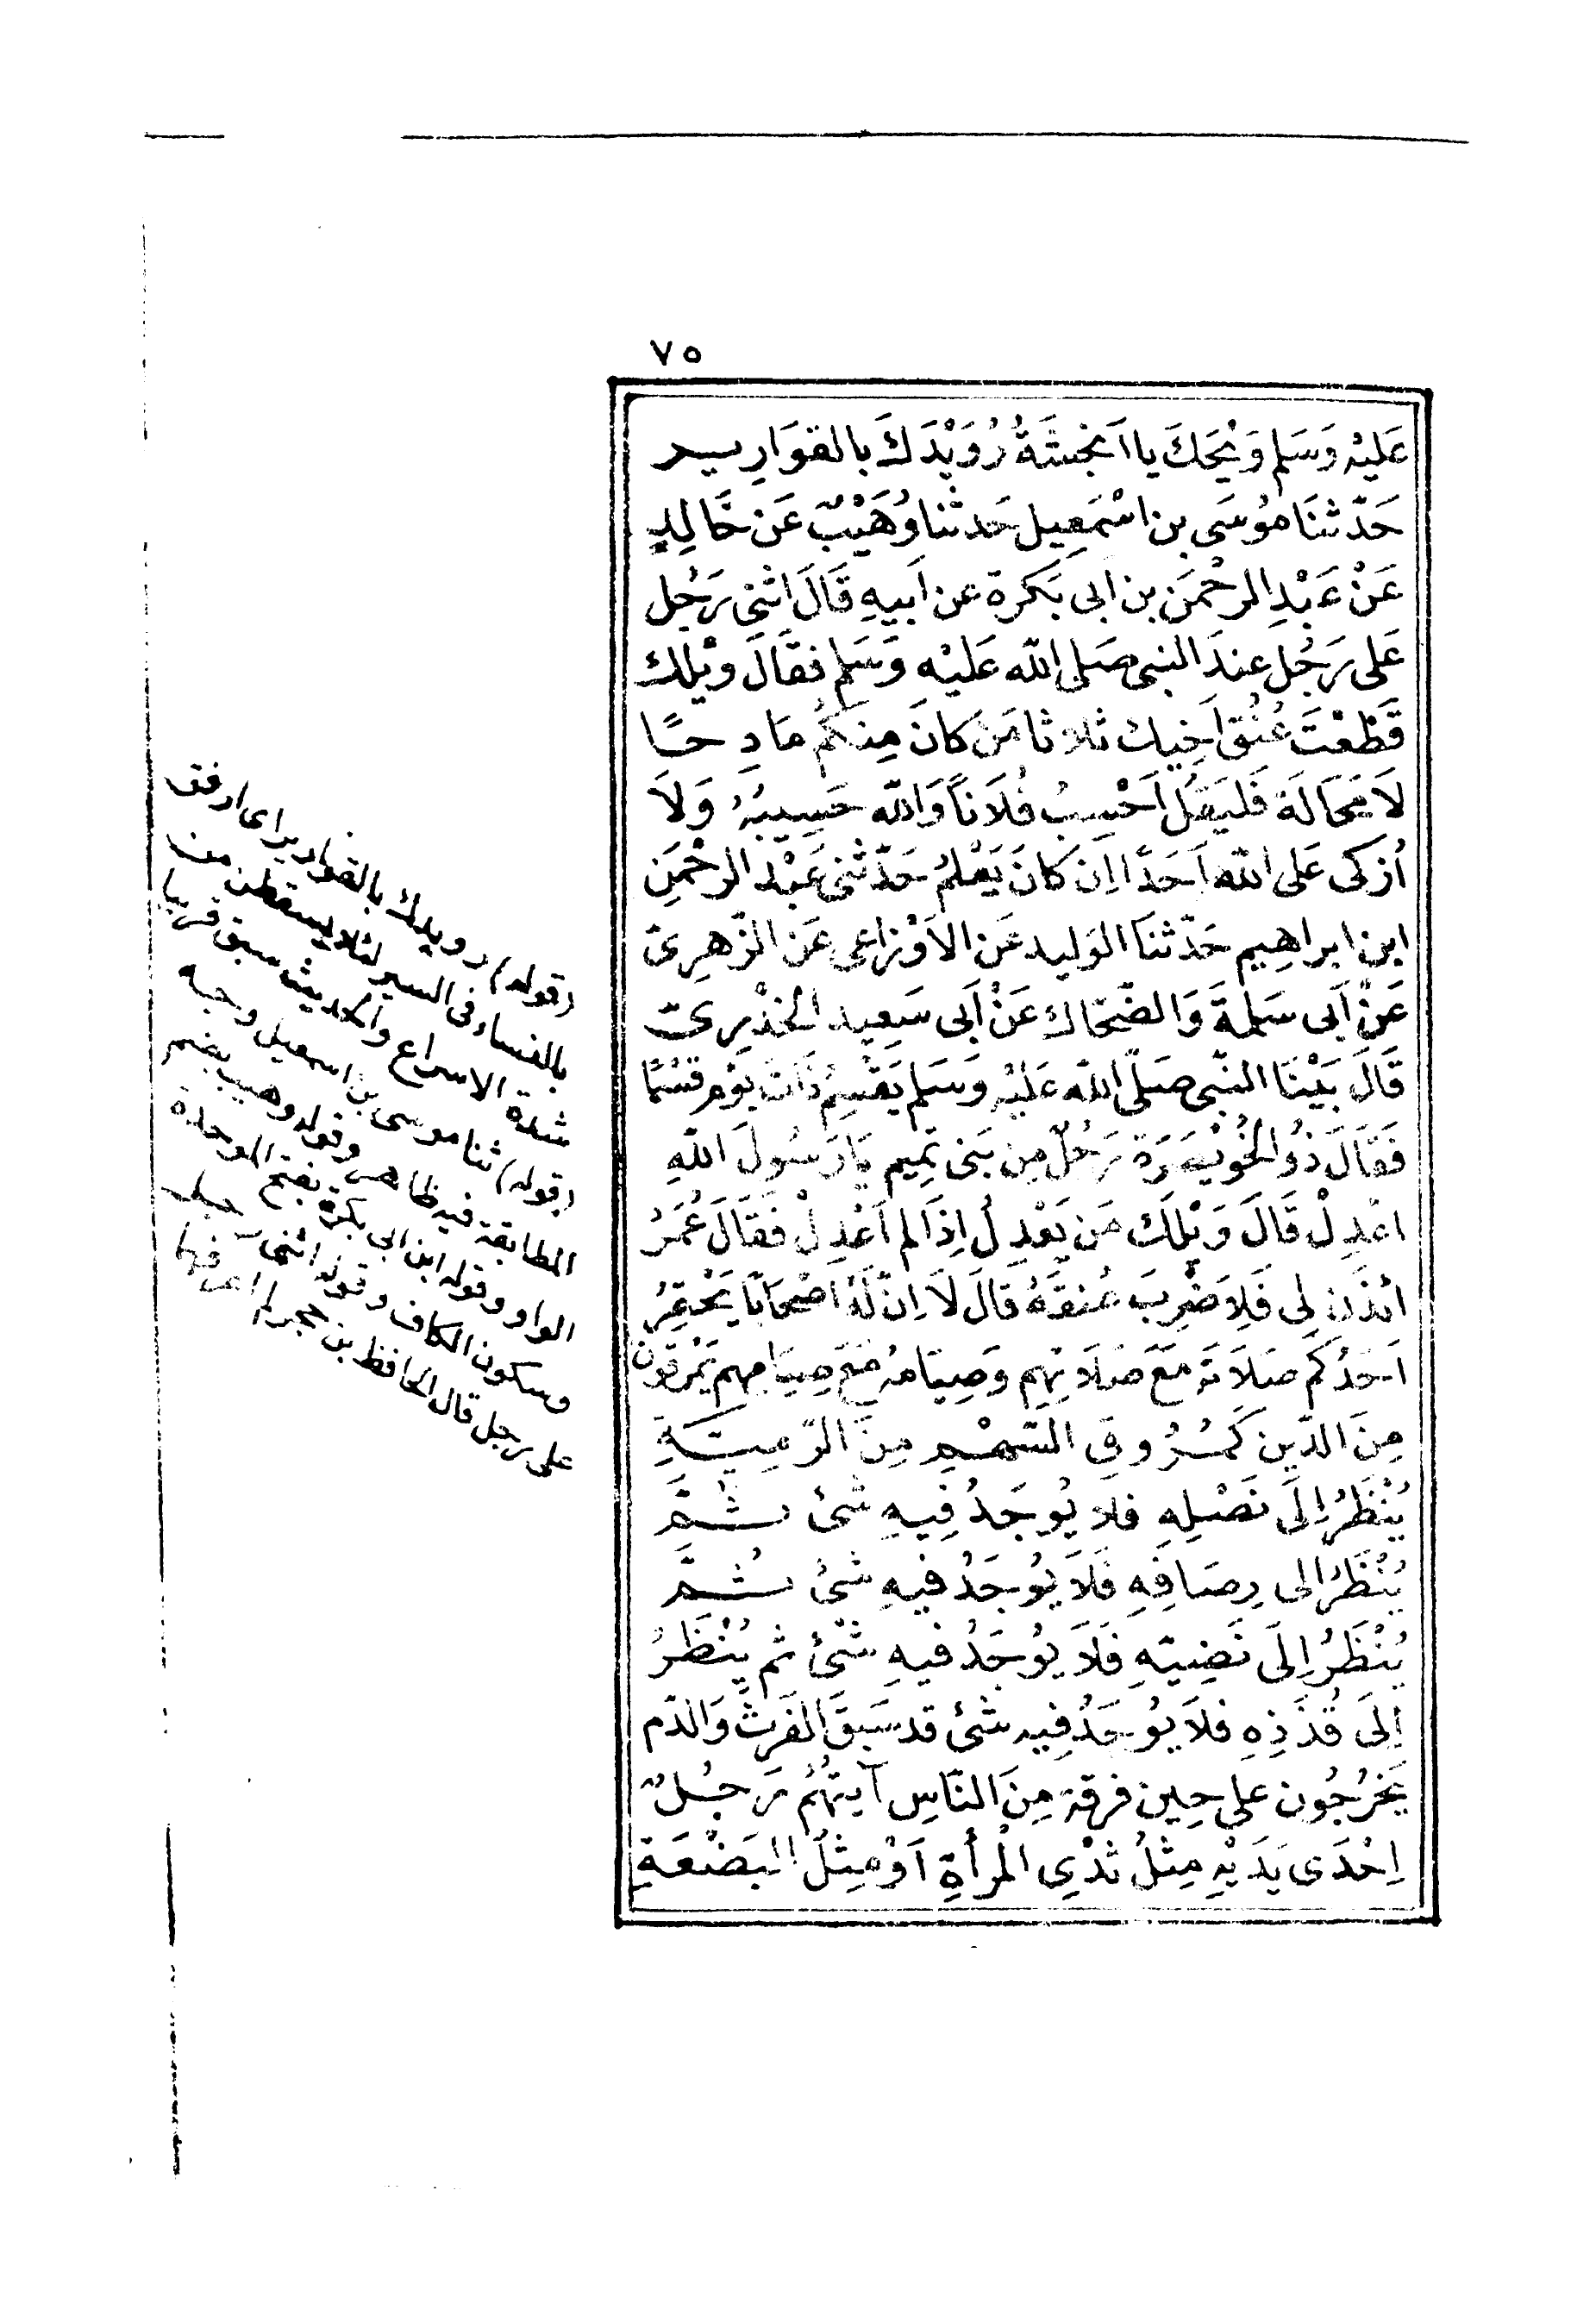 ٧٥
عَلَيْهِ وَسَلم وَيْحَكَ يا اَنْجَشَةُ رُوَيْدَكَ بالقوَارِير
حَدّثنَا مُوسَى بن اسْمٰعِيل حَدثنا وُهَيْبٌ عَن خَالِدٍ
عَنْ عَبْدِ الرحْمَن بن ابى بَكرة عن اَبيهِ قَالَ اثنى رَجُل
عَلى رَجُل عندَ النبى صَلى الله عَليْه وَسَلم فقَالَ وَيْلك
قَطَعْتَ عُنُقَ اَخِيك ثلاثا مَن كانَ مِنكُم مَادِحًا
لَا مَحَالَةَ فَليَقُل اَحْسِبُ فُلَاناً وَالله حَسِيبُهُ وَلَا
اُزكى عَلى الله اَحَدًا اِن كانَ يَعْلمُ حَدّثنى عَبْد الرحْمٰنِ
ابن ابراهِيم حَدّثنَا الوَليد عَن الاَوْزاعى عَن الزّهرِىّ
عَنْ اَبى سَلمةَ وَالضّحّاك عَنْ اَبى سَعِيد الخدْرىّ
قَالَ بَيْنَا النّبى صَلّى الله عَليْهِ وَسَلم يَقسِمُ ذَاتَ يَوْم قسْمًا
فَقَالَ ذُو الخُوَيْصِرَة رَجُلٌ مِن بَنى تَمِيم يَا رَسُولَ اللهِ
اعْدِلْ قَالَ وَيْلَكَ مَن يَعْدِلُ اِذَا لم اَعْدِلْ فَقَالَ عُمَرُ
ائذَن لِى فَلِاَضْرِبَ عُنقَهُ قالَ لَا اِنّ لَهُ اَصْحَابًا يَحْقِرُ
اَحَدُكم صَلاَتهُ مَعَ صَلَاتِهِم وَصِيَامَهُ مَعَ صِيَامِهِم يَمْرقونَ
مِنَ الدّين كَمُرُوقِ السّهْمِ مِنَ الرّمِيّةِ
يُنْظَرُ اِلَى نَصْلِهِ فلا يُوجَدُ فِيهِ شَئ ثُمَّ
يُنْظَرُ الى رِصَافِهِ فَلَا يُوجَدُ فيهِ شئ ثُمَّ
يُنْظَرُ اِلَى نَضِيّهِ فَلَا يُوجَدُ فيهِ شَئ ثم يُنْظَرُ
اِلَى قُذَذِهِ فلَا يُوجَدُ فِيه شئ قد سَبَقَ الفَرثَ وَالدّم
يَخْرُجُون على حِين فرقة مِنَ النّاسِ آيَتُهُمْ رَجُلٌ
اِحْدَى يَدَيْهِ مِثلُ ثدْىِ المْرأةِ اَوْ مِثلُ البَضْعَةِ
(قوله) رويدك بالقوارير اى ارفق
بالنساء فى السير لئلا يسقطن من
شدة الاسراع والحديث سبق قريبا
(قوله) ثنا موسى بن اسمعيل وجه
المطابقة فيه ظاهر وقوله وهيب بضم
الواو وقوله ابن ابى بكرة بفتح الموحدة
وسكون الكاف وقوله اثنى رجل
على رجل قال الحافظ بن حجر لم اعرفهما